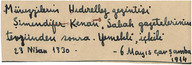 Müneyyilerin Hıderellez gezintisi
Şimendifer Kenarı, Sabah gazetelerinin
tezyinden sonra. Yemekli, içkili
23 Nisan 1330 - 6 Mayıs Çarşamba
1914